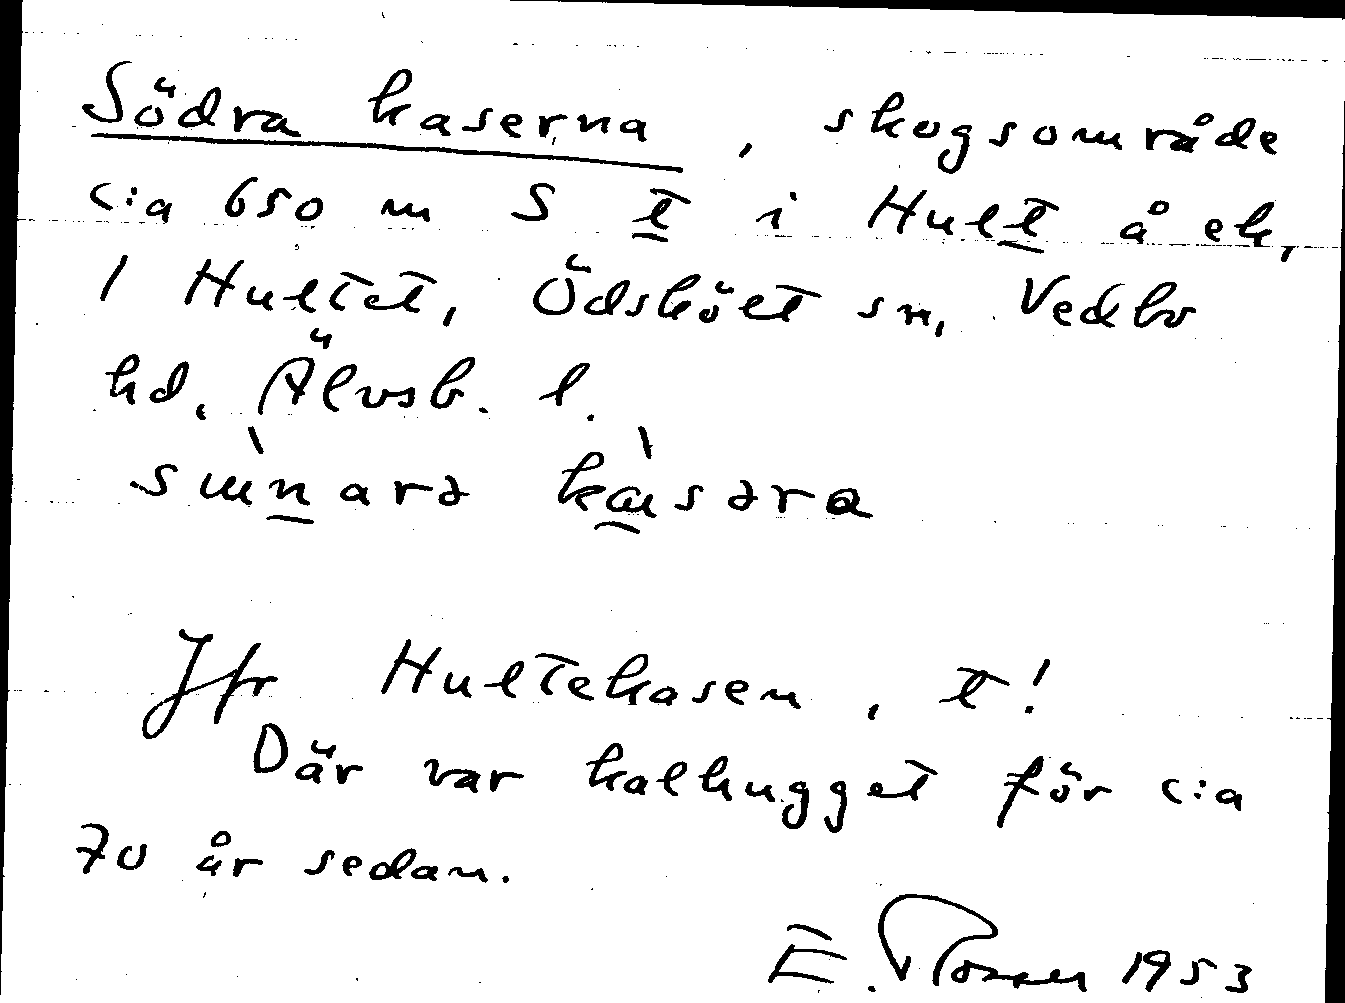 Södra kaserna, skogsområde
c:a 650 m S t i Hult å ek,
1 Hultet, Ödsköet sn, Vedbo
hd. Älvsb. l.
Jfr Hultekasen, t!
Där var kalhugget för c:a
70 år sedan.
E. 1953